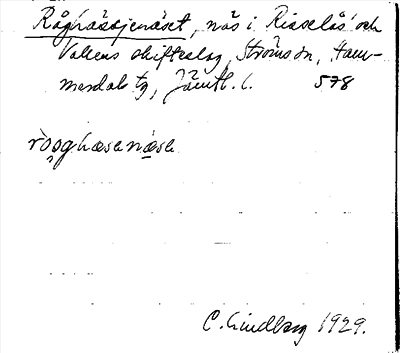 Råghässjenäset, näs i Risselås och
Valleens skifteslag, Ströms sn, Ham-
merdals tg, Jämtl. l. 578
C. Lindberg 1929.